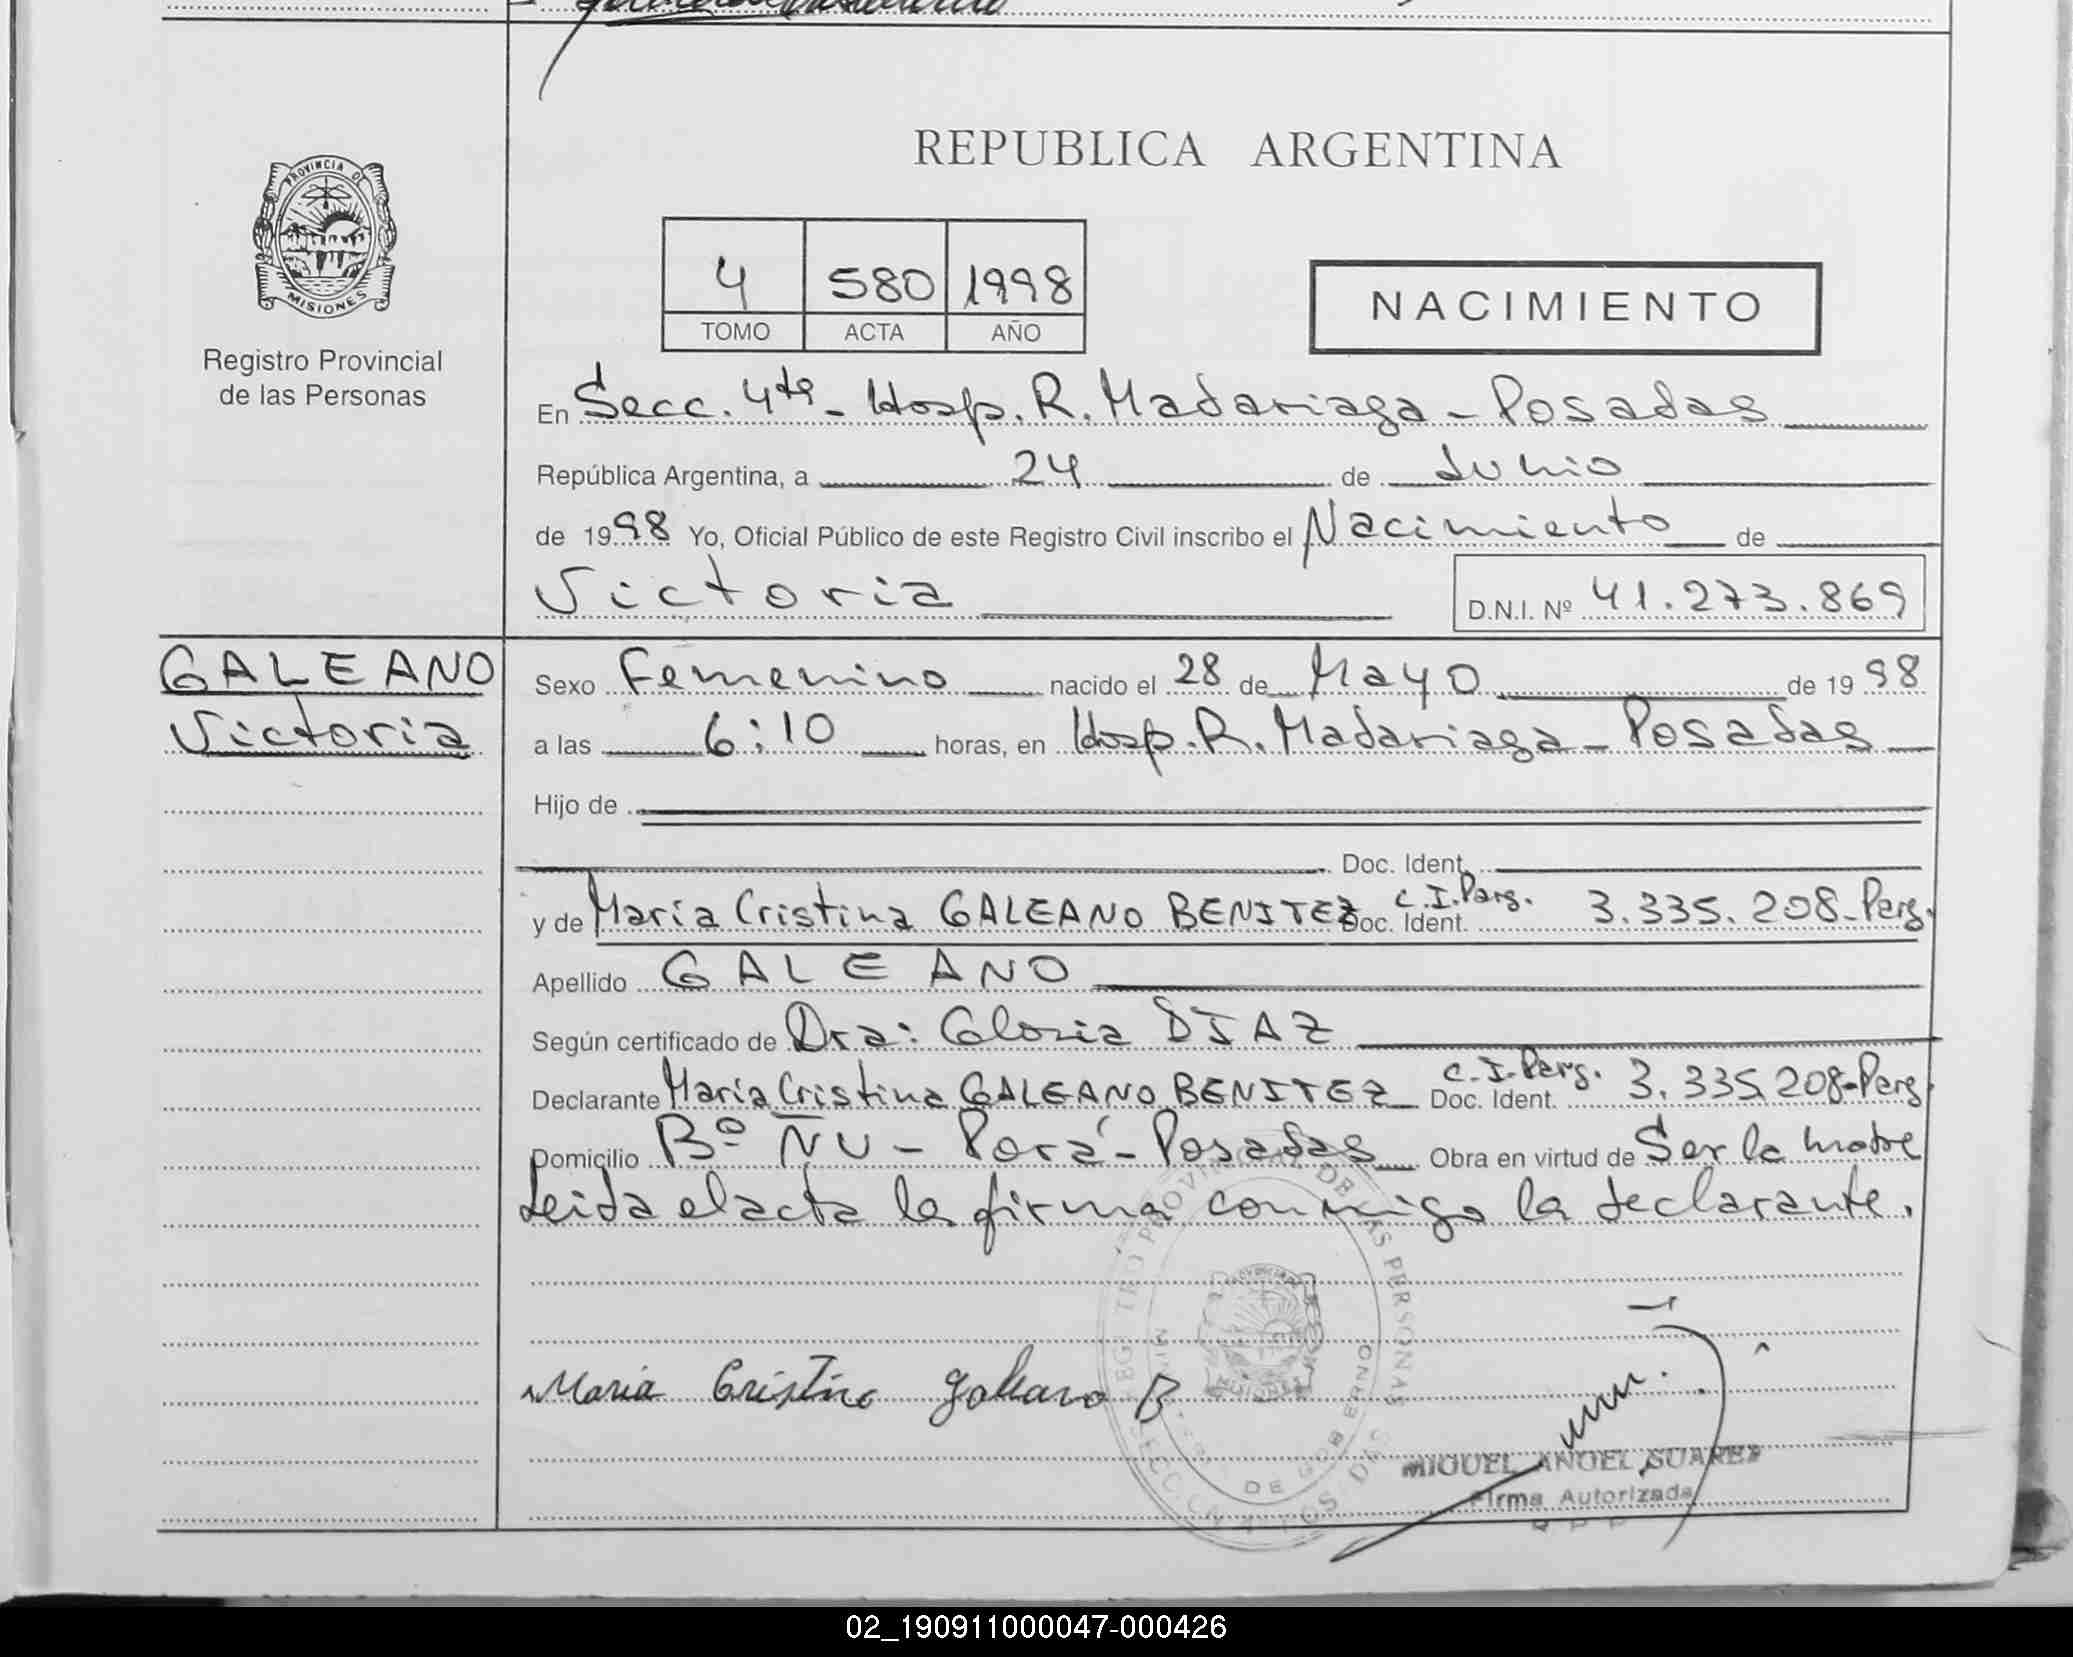 REPUBLICA ARGENTINA
PROVINCIA DE
MISIONES
Registro Provincial
de las Personas
4 580 1998
TOMO ACTA AÑO
NACIMIENTO
En Secc. 4ta - Hosp. R. Madariaga - Posadas
República Argentina, a 24 de Junio
de 1998 Yo, Oficial Público de este Registro Civil inscribo el Nacimiento de
Victoria D.N.I. Nº 41.273.869
GALEANO
Victoria
Sexo Femenino nacido el 28 de Mayo de 1998
a las 6:10 horas, en Hosp. R. Madariaga - Posadas
Hijo de
Doc. Ident.
y de María Cristina GALEANO BENITEZ Doc. Ident. C.I. Parg. 3.335.208-Parg.
Apellido GALEANO
Según certificado de Dra: Gloria DIAZ
Declarante María Cristina GALEANO BENITEZ Doc. Ident. C.I. Parg. 3.335.208-Parg
Domicilio Bº ÑU - Porá - Posadas Obra en virtud de Ser la madre
Leida el acta la firma conmigo la declarante.
REGISTRO PROVINCIAL DE LAS PERSONAS
DE GOBIERNO
Maria Cristina Galeano B
MIGUEL ANGEL SUAREZ
Firma Autorizada
02_190911000047-000426